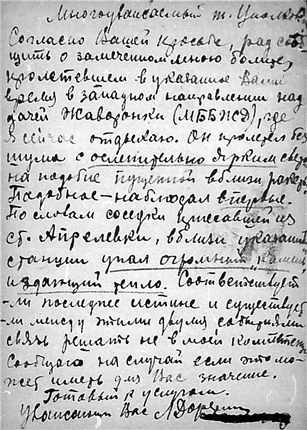 Многоуважаемый т.
Согласно Вашей просьбе, рад сооб-
щить о замеченном мною болиде,
пролетевшем в указанное Вами
время в западном направлении над
дачей Жаворонки (МББЖД), где
я сейчас отдыхаю. Он пролетел без
шума с ослепительно ярким
на подобие пущенной вблизи
Подобное – наблюдал впервые.
По словам соседки приехавшей из
ст. Апрелевки, вблизи указанной
станции упал огромный
издающий тело. Соответствует
-ли последнее истине и существует
-ли между этими двумя событиями
связь решать не в моей компетенции.
Сообщаю на случай если это мо-
жет иметь для Вас значение.
Готовый к услугам.
Уважающий Вас